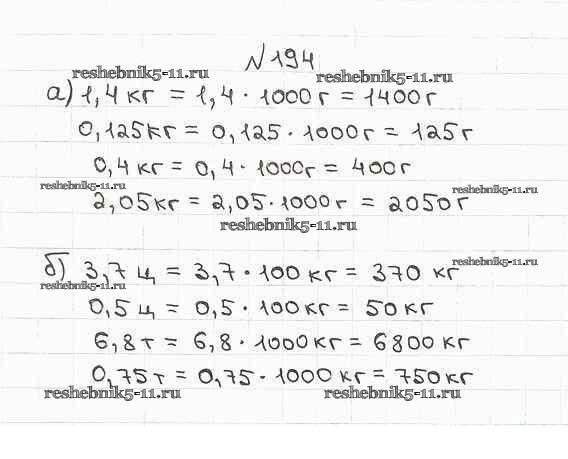 №194
reshebnik5-11.ru reshebnik5-11.ru
а) 1,4 кг = 1,4 · 1000 г = 1400 г
0,125 кг = 0,125 · 1000 г = 125 г
0,4 кг = 0,4 · 1000 г = 400 г
reshebnik5-11.ru reshebnik5-11.ru
2,05 кг = 2,05 · 1000 г = 2050 г
reshebnik5-11.ru
б) 3,7 ц = 3,7 · 100 кг = 370 кг
reshebnik5-11.ru reshebnik5-11.ru
0,5 ц = 0,5 · 100 кг = 50 кг
6,8 т = 6,8 · 1000 кг = 6800 кг
0,75 т = 0,75 · 1000 кг = 750 кг
reshebnik5-11.ru reshebnik5-11.ru